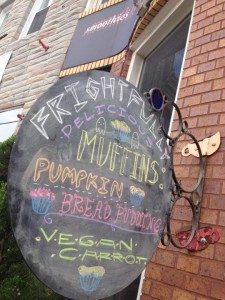 smoothies
BRIGHTFULLY
DELICIOUS
MUFFINS
PUMPKIN
BREAD PUDDING
VEGAN
CARROT